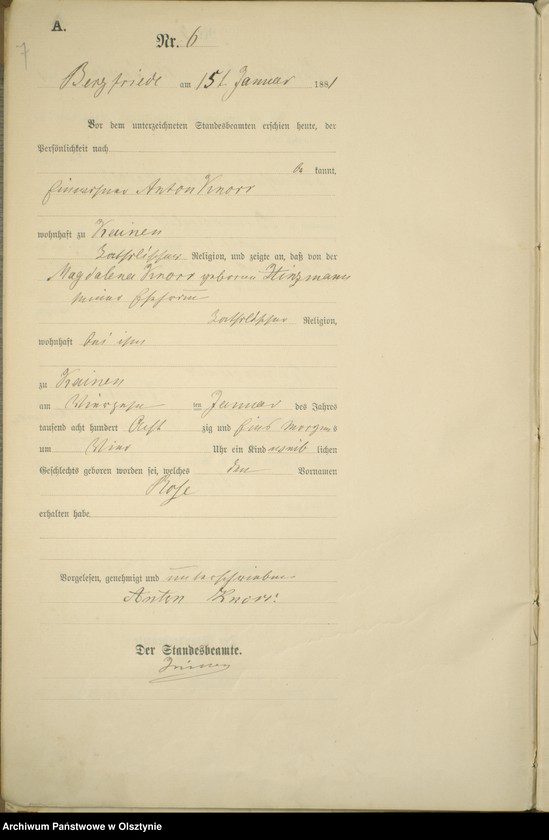 A.
7
Nr. 6
Bergfriede am 15t Januar 1881
Vor dem unterzeichneten Standesbeamten erschien heute, der
Persönlichkeit nach
be kannt,
Anton Knorr
wohnhaft zu Keinen
katholischer Religion, und zeigte an, daß von der
Magdalena Knorr geborene Hinzmann
seiner Ehefrau
katholischer Religion,
wohnhaft bei ihm
zu Keinen
am Vierzehn ten Januar des Jahres
tausend acht hundert Acht zig und Eins Morgens
um Vier Uhr ein Kind weib lichen
Geschlechts geboren worden sei, welches den Vornamen
Rose
erhalten habe.
Vorgelesen, genehmigt und unterschrieben
Anton Knorr.
Der Standesbeamte.
Archiwum Państwowe w Olsztynie